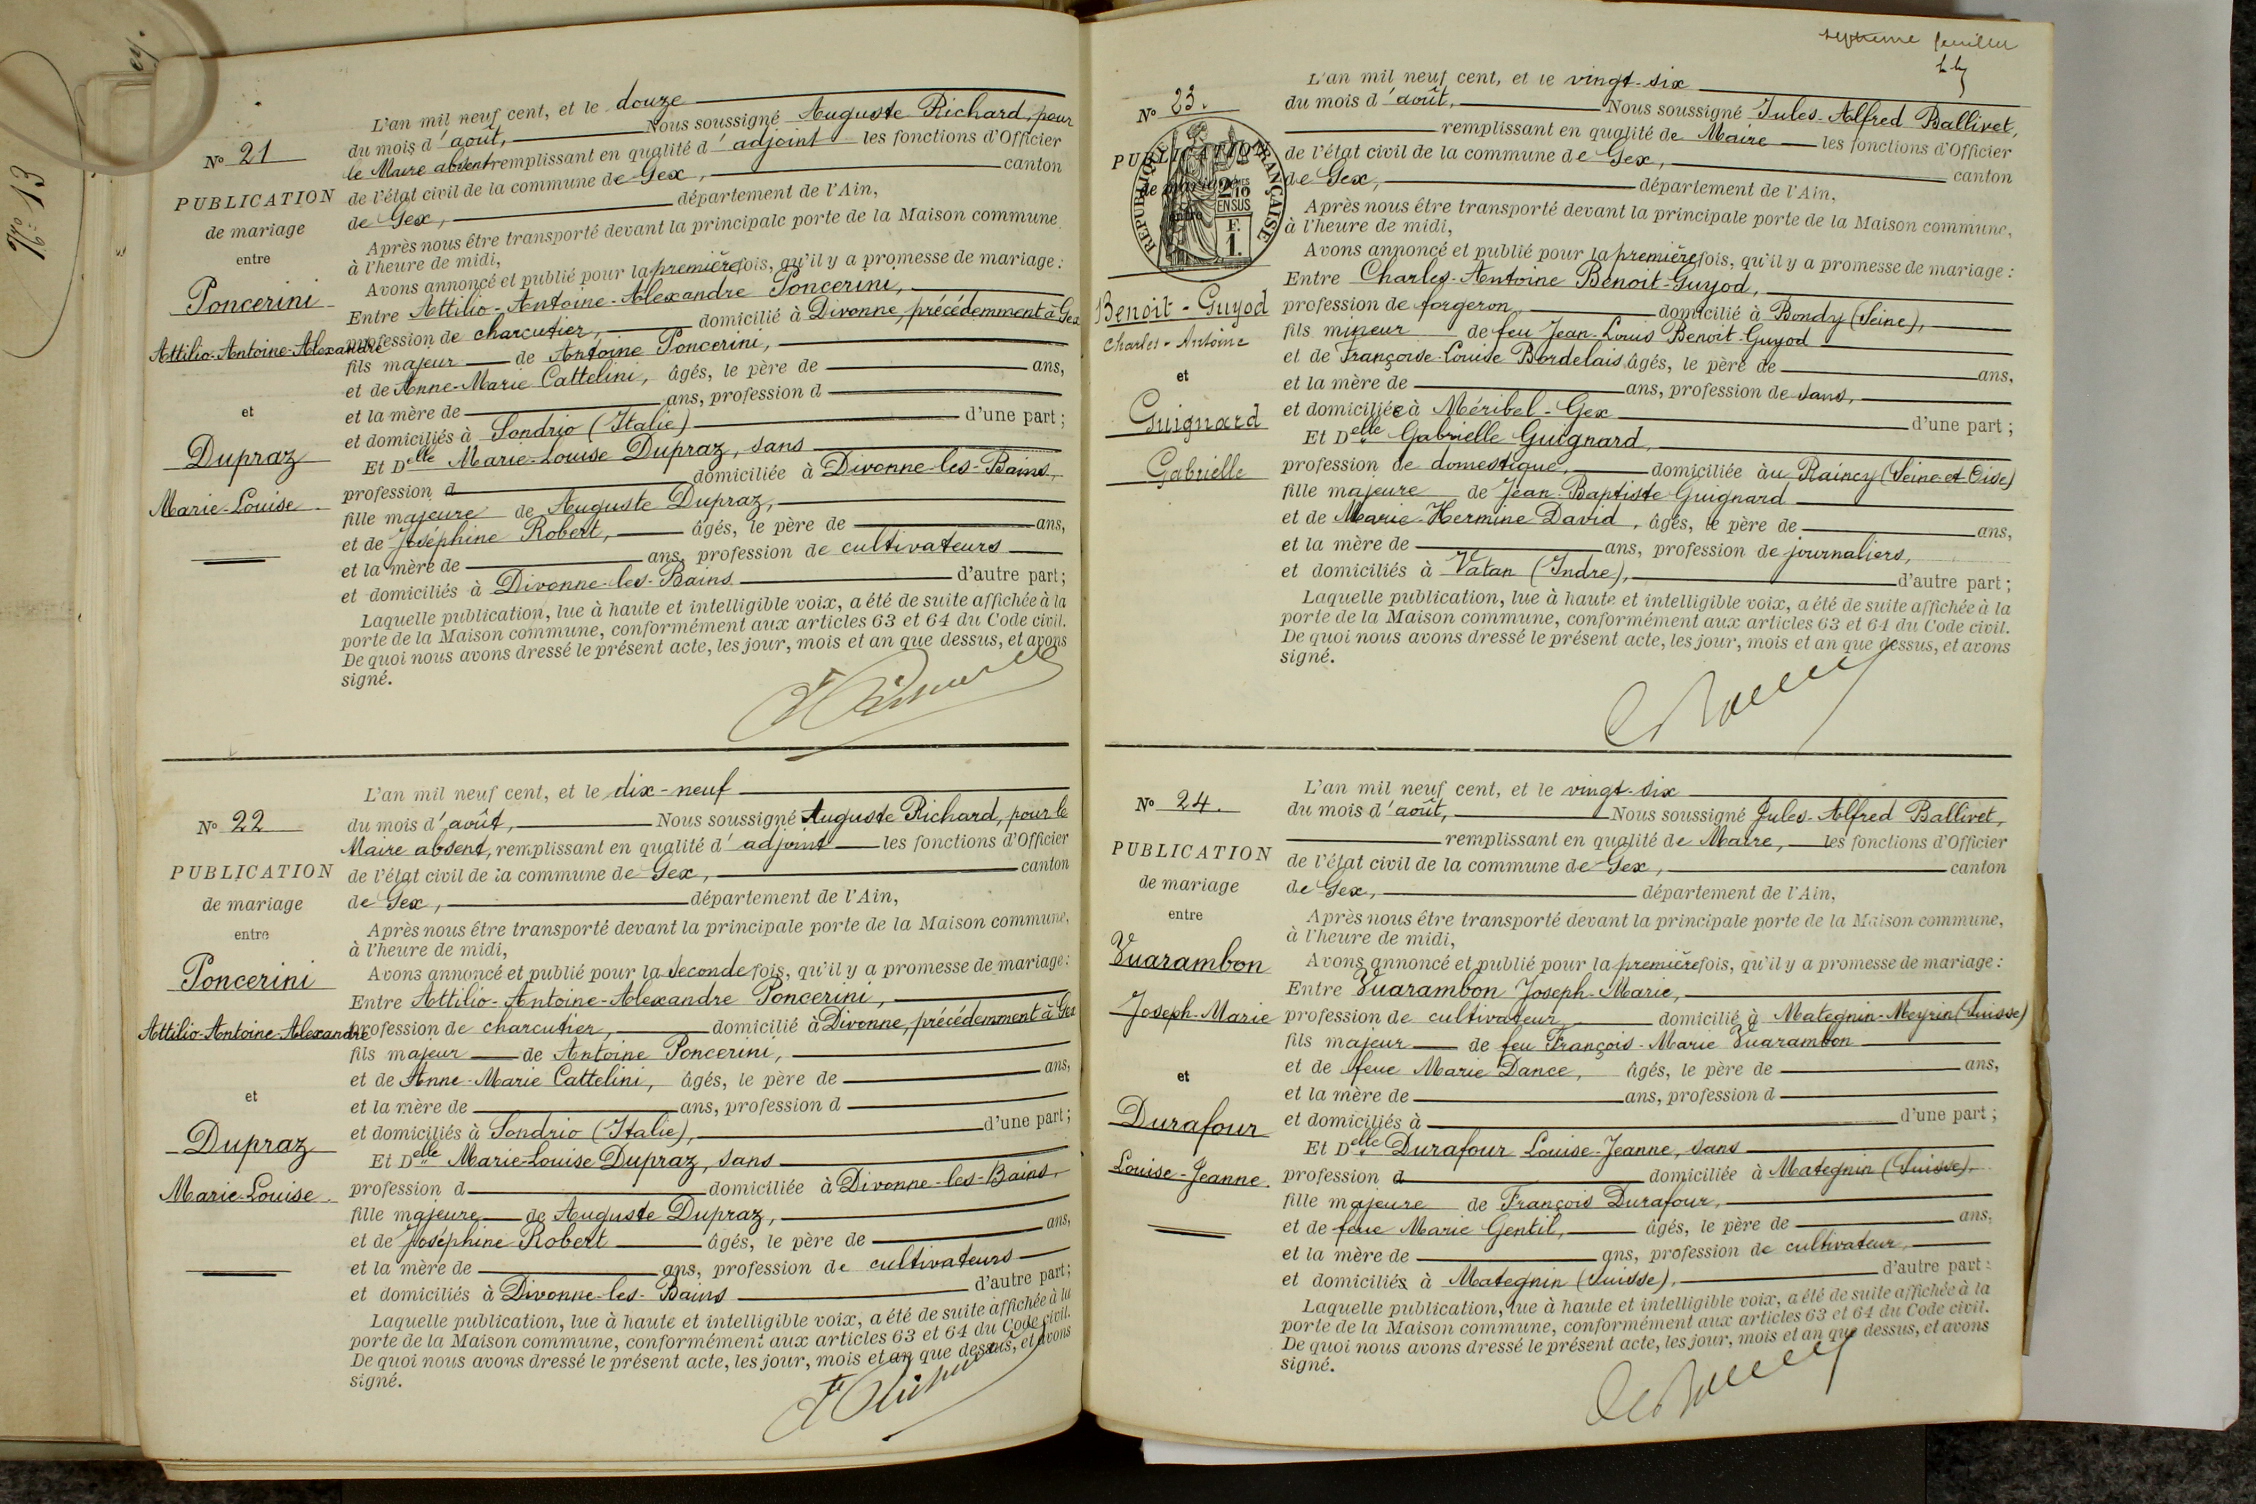 N° 13
N° 21
PUBLICATION
de mariage
entre
Poncerini
Attilio-Antoine-Alexandre
et
Dupraz
Marie-Louise
L'an mil neuf cent, et le douze
du mois d'août, Nous soussigné Auguste Richard, pour
le Maire absent remplissant en qualité d'adjoint les fonctions d'Officier
de l'état civil de la commune de Gex, canton
de Gex, département de l'Ain,
Après nous être transporté devant la principale porte de la Maison commune
à l'heure de midi,
Avons annoncé et publié pour la première fois, qu'il y a promesse de mariage :
Entre Attilio-Antoine-Alexandre Poncerini,
profession de charcutier, domicilié à Divonne, précédemment à Gex
fils majeur de Antoine Poncerini,
et de Anne-Marie Cattelini, âgés, le père de ans,
et la mère de ans, profession d
et domiciliés à Sondrio (Italie) d'une part ;
Et Delle Marie-Louise Dupraz, sans
profession d domiciliée à Divonne-les-Bains,
fille majeure de Auguste Dupraz,
et de Joséphine Robert, âgés, le père de ans,
et la mère de ans, profession de cultivateurs
et domiciliés à Divonne-les-Bains d'autre part ;
Laquelle publication, lue à haute et intelligible voix, a été de suite affichée à la
porte de la Maison commune, conformément aux articles 63 et 64 du Code civil.
De quoi nous avons dressé le présent acte, les jour, mois et an que dessus, et avons
signé.
N° 22
PUBLICATION
de mariage
entre
Poncerini
Attilio-Antoine-Alexandre
et
Dupraz
Marie-Louise.
L'an mil neuf cent, et le dix-neuf
du mois d'août, Nous soussigné Auguste Richard, pour le
Maire absent, remplissant en qualité d'adjoint les fonctions d'Officier
de l'état civil de la commune de Gex, canton
de Gex, département de l'Ain,
Après nous être transporté devant la principale porte de la Maison commune,
à l'heure de midi,
Avons annoncé et publié pour la seconde fois, qu'il y a promesse de mariage :
Entre Attilio-Antoine-Alexandre Poncerini,
profession de charcutier, domicilié à Divonne, précédemment à Gex
fils majeur de Antoine Poncerini,
et de Anne-Marie Cattelini, âgés, le père de ans,
et la mère de ans, profession d
et domiciliés à Sondrio (Italie), d'une part ;
Et Delle Marie-Louise Dupraz, sans
profession d domiciliée à Divonne-les-Bains,
fille majeure de Auguste Dupraz,
et de Joséphine Robert âgés, le père de ans,
et la mère de ans, profession de cultivateurs
et domiciliés à Divonne-les-Bains d'autre part ;
Laquelle publication, lue à haute et intelligible voix, a été de suite affichée à la
porte de la Maison commune, conformément aux articles 63 et 64 du Code civil.
De quoi nous avons dressé le présent acte, les jour, mois et an que dessus, et avons
signé.
septième feuillet
N° 23.
PUBLICATION
de mariage
entre
RÉPUBLIQUE FRANÇAISE
2/10
EN SUS
F.
1.
Benoit-Guyod
Charles-Antoine
et
Guignard
Gabrielle
L'an mil neuf cent, et le vingt-six
du mois d'août, Nous soussigné Jules-Alfred Ballivet,
remplissant en qualité de Maire les fonctions d'Officier
de l'état civil de la commune de Gex, canton
de Gex, département de l'Ain,
Après nous être transporté devant la principale porte de la Maison commune,
à l'heure de midi,
Avons annoncé et publié pour la première fois, qu'il y a promesse de mariage :
Entre Charles-Antoine Benoit-Guyod,
profession de forgeron, domicilié à Bondy (Seine),
fils mineur de feu Jean-Louis Benoit-Guyod
et de Françoise-Louise Bordelais, âgés, le père de ans,
et la mère de ans, profession de sans,
et domiciliée à Méribel-Gex d'une part ;
Et Delle Gabrielle Guignard,
profession de domestique, domiciliée au Raincy (Seine-et-Oise)
fille majeure de Jean-Baptiste Guignard
et de Marie-Hermine David, âgés, le père de ans,
et la mère de ans, profession de journaliers,
et domiciliés à Vatan (Indre), d'autre part ;
Laquelle publication, lue à haute et intelligible voix, a été de suite affichée à la
porte de la Maison commune, conformément aux articles 63 et 64 du Code civil.
De quoi nous avons dressé le présent acte, les jour, mois et an que dessus, et avons
signé.
N° 24.
PUBLICATION
de mariage
entre
Vuarambon
Joseph-Marie
et
Durafour
Louise-Jeanne.
L'an mil neuf cent, et le vingt-six
du mois d'août, Nous soussigné Jules-Alfred Ballivet,
remplissant en qualité de Maire, les fonctions d'Officier
de l'état civil de la commune de Gex, canton
de Gex, département de l'Ain,
Après nous être transporté devant la principale porte de la Maison commune,
à l'heure de midi,
Avons annoncé et publié pour la première fois, qu'il y a promesse de mariage :
Entre Vuarambon Joseph-Marie,
profession de cultivateur domicilié à Mategnin-Meyrin (Suisse)
fils majeur de feu François-Marie Vuarambon
et de feue Marie Dance, âgés, le père de ans,
et la mère de ans, profession d
et domiciliés à d'une part ;
Et Delle Durafour Louise-Jeanne, sans
profession d domiciliée à Mategnin (Suisse).
fille majeure de François Durafour,
et de feue Marie Gentil, âgés, le père de ans,
et la mère de ans, profession de cultivateur,
et domiciliés à Mategnin (Suisse), d'autre part :
Laquelle publication, lue à haute et intelligible voix, a été de suite affichée à la
porte de la Maison commune, conformément aux articles 63 et 64 du Code civil.
De quoi nous avons dressé le présent acte, les jour, mois et an que dessus, et avons
signé.